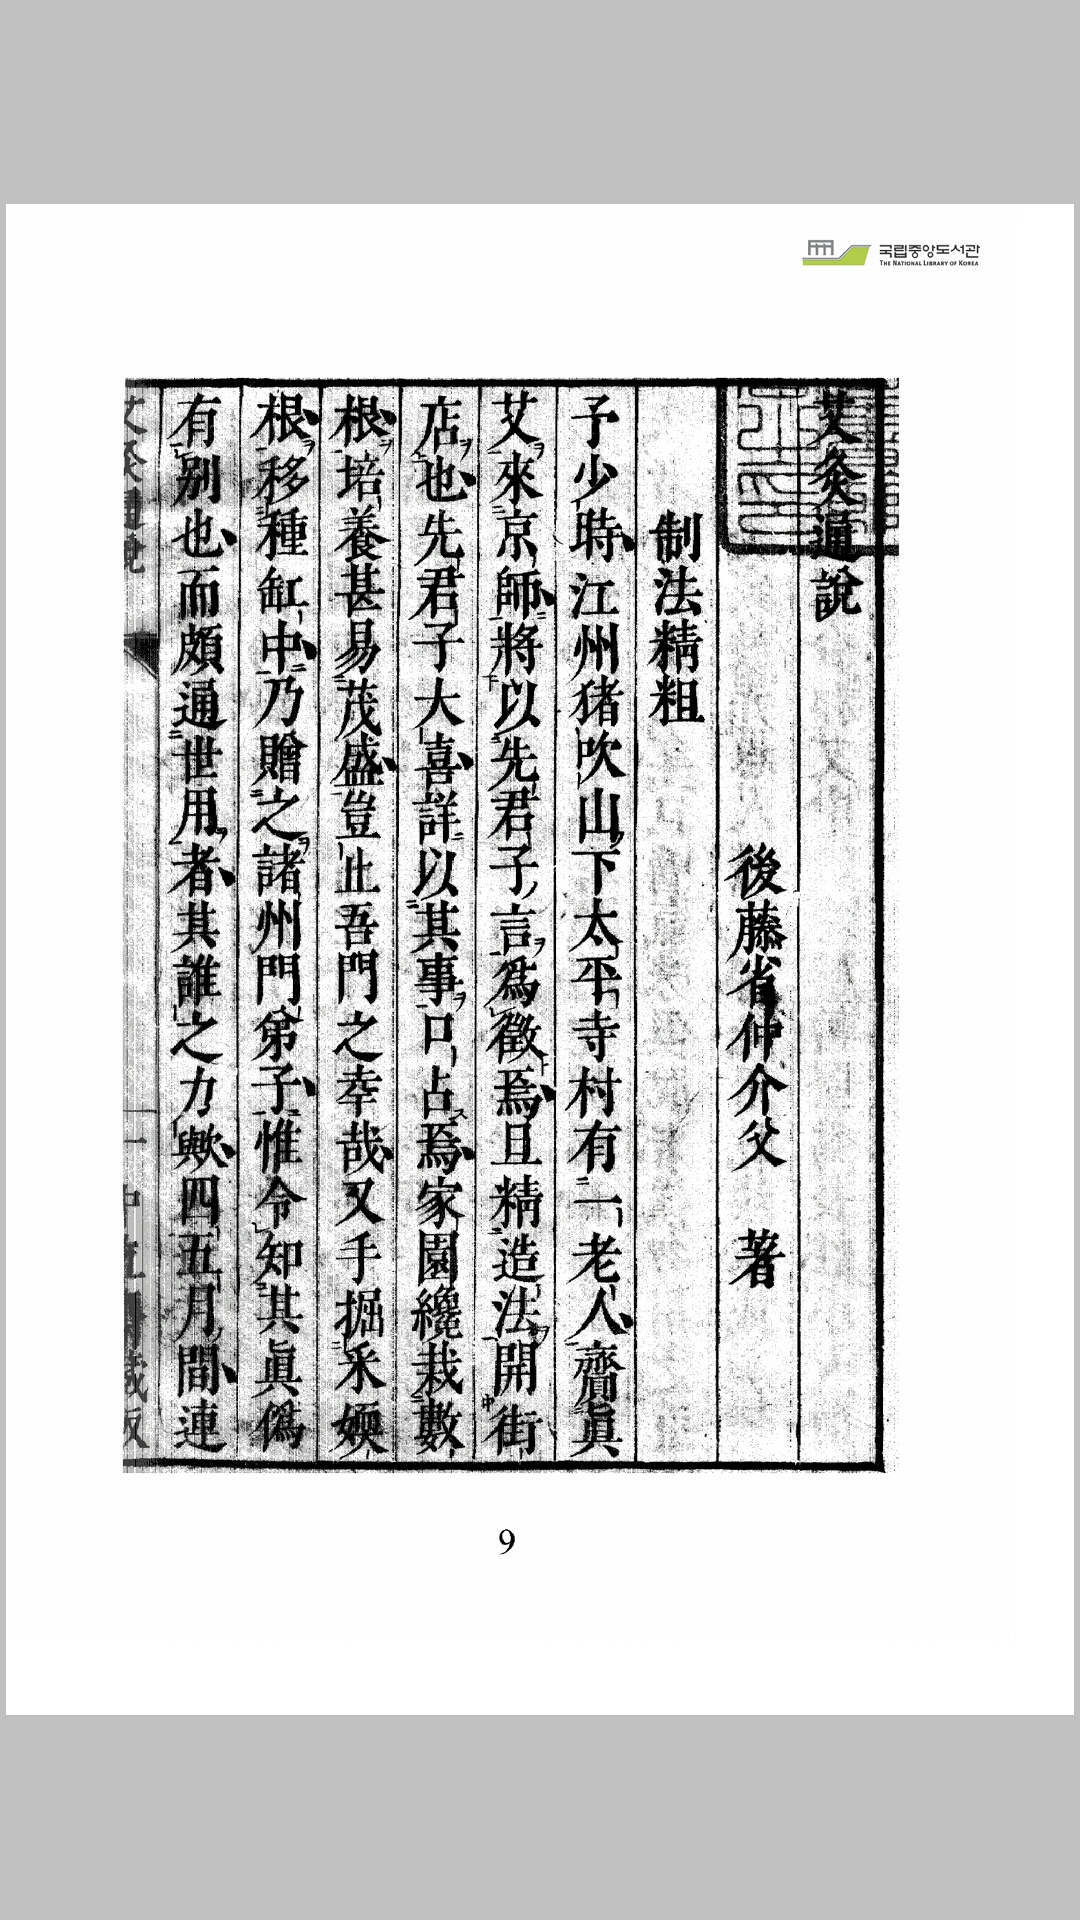 국립중앙도서관
THE NATIONAL LIBRARY OF KOREA
艾灸通說
後藤省仲介父 著
制法精粗
予少時江州猪吹山下太平寺村有一老人齎眞
艾來京師將以先君子言爲徵焉且精造法開街
店也先君子大喜詳以其事口占焉家園纔栽數
根培養甚易茂盛豈止吾門之幸哉又手掘釆媆
根移種缸中乃贈之諸州門弟子惟令知其眞僞
有別也而頗通世用者其誰之力歟四五月間連
9